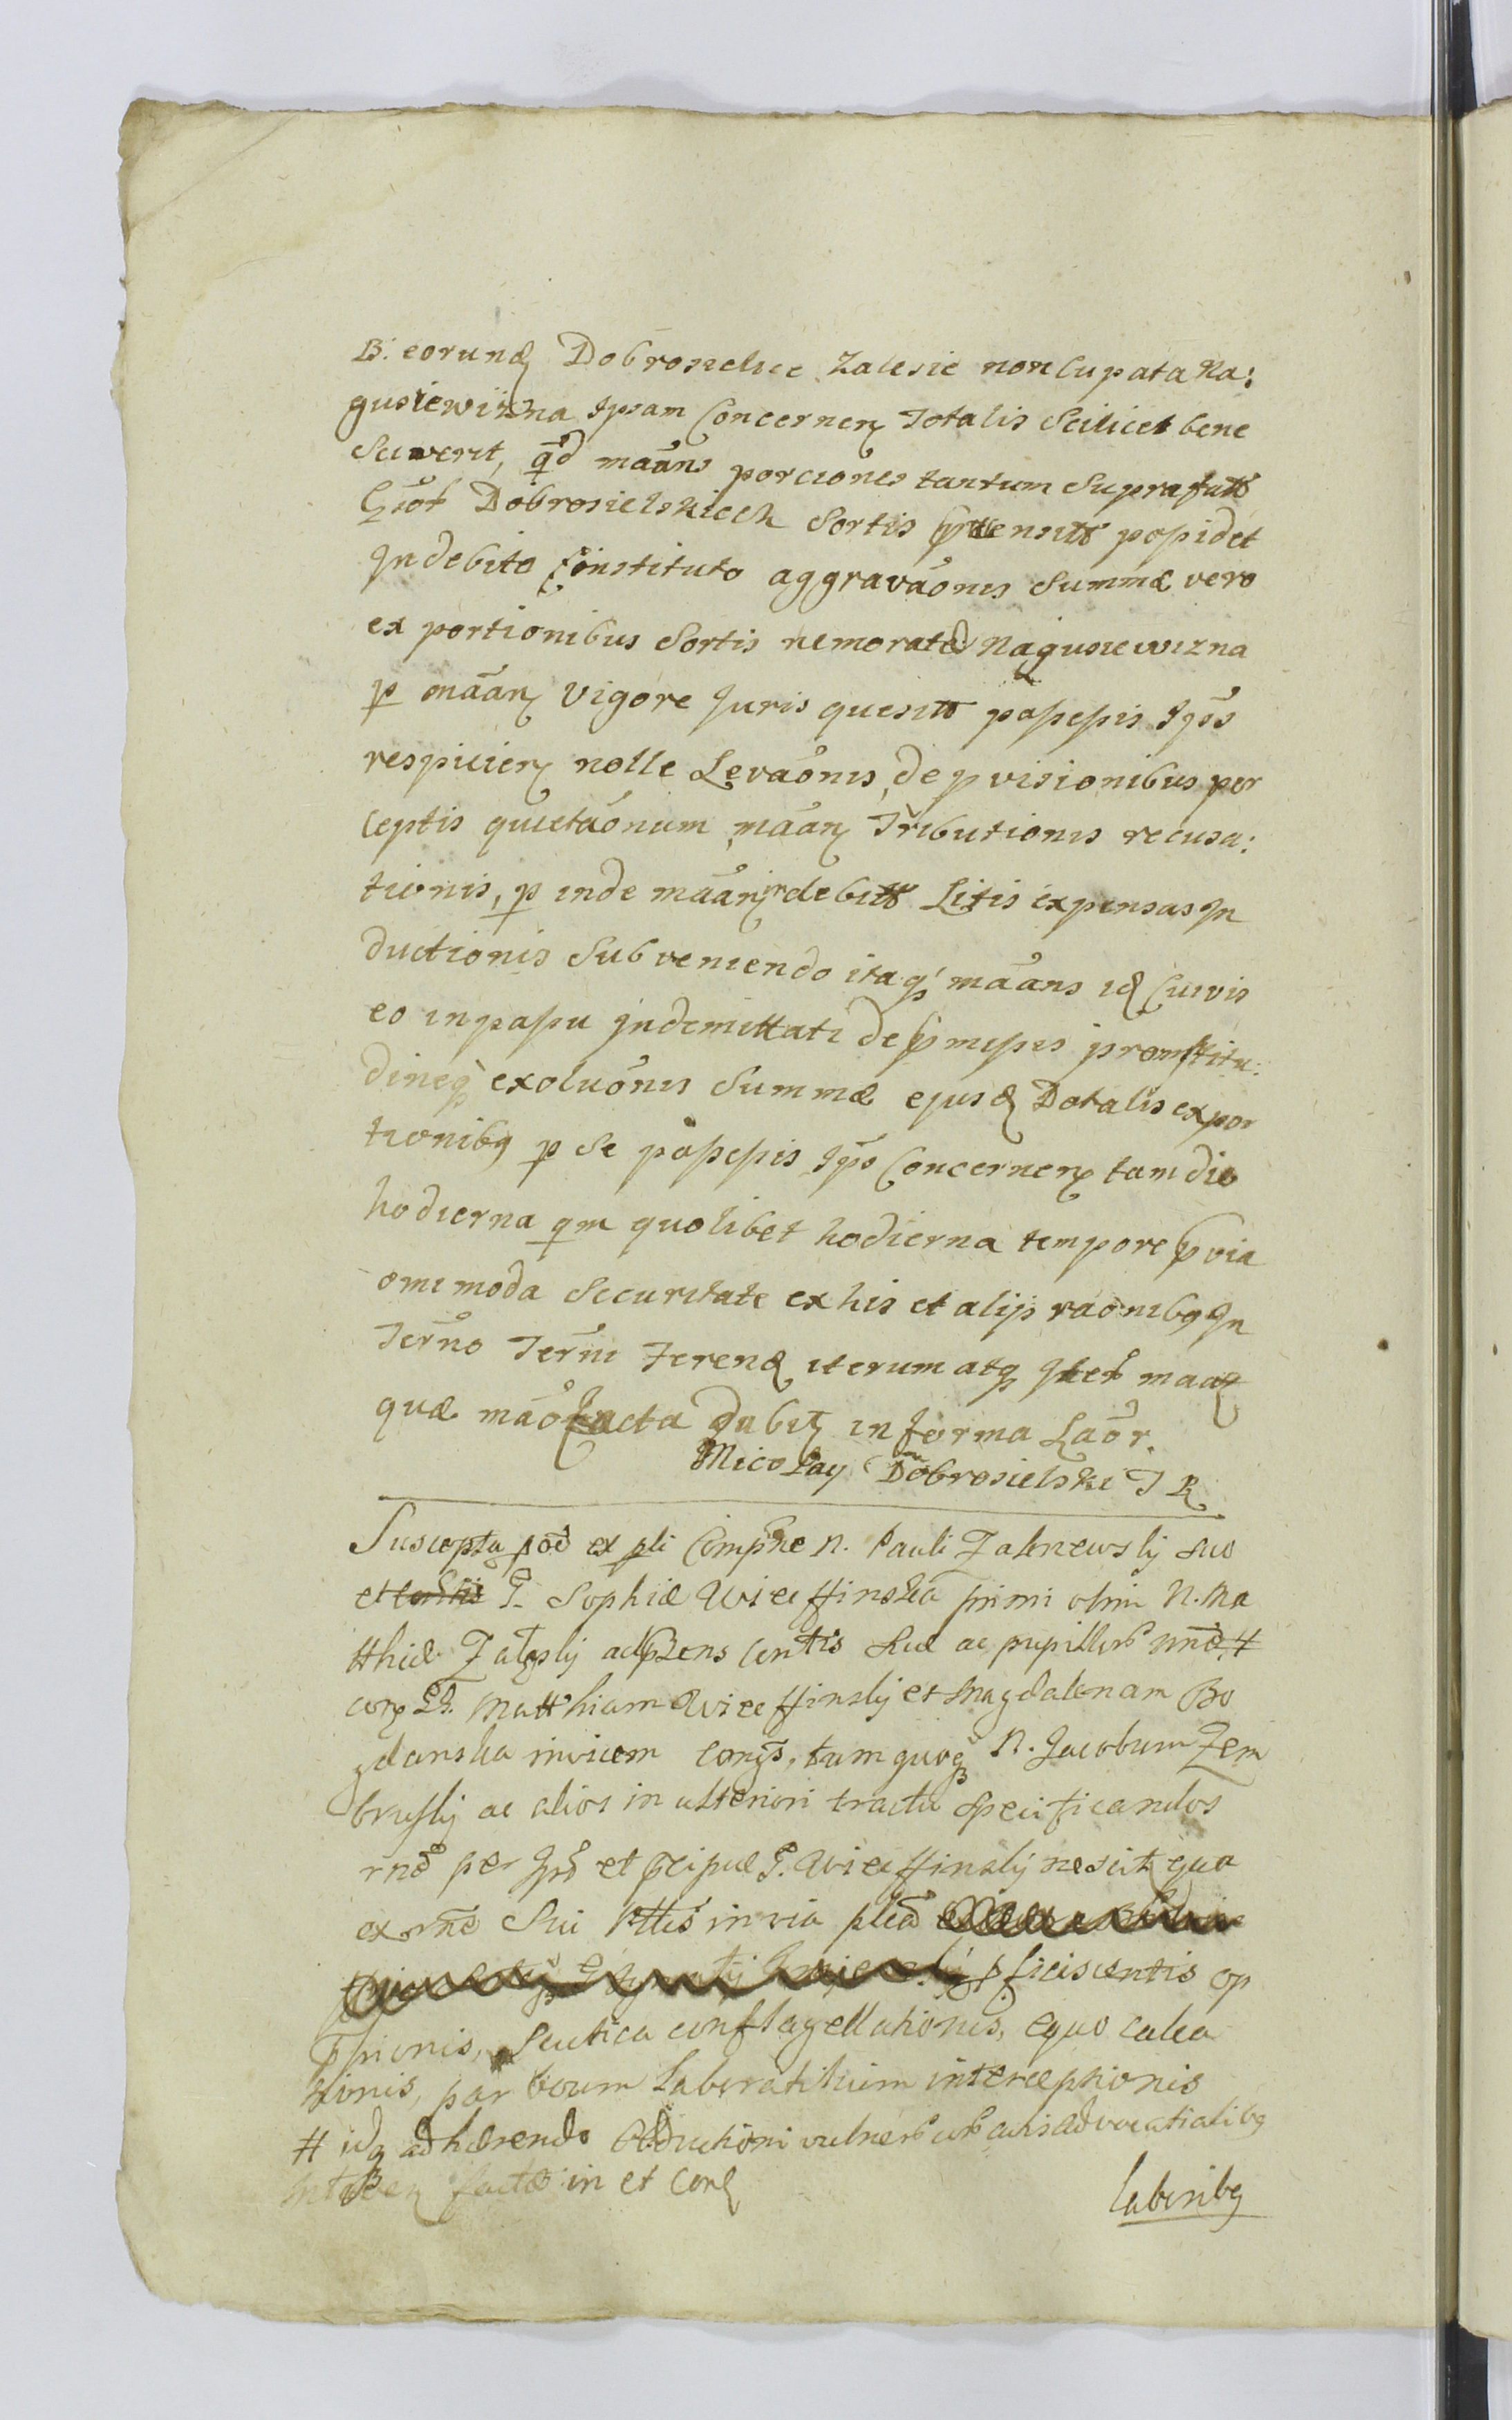 B. eorund Dobrosielice Zalesie noncupata Na:
gusiewizna Ipsam Concernen Totalis Scilicet bene
Sciverit, qd maans porciones tantum Suprafatt
Gsof Dobrosielskiech Sortis possidet
Indebito Constituto aggravaonis Summæ vero
ex portionibus Sortis nemorate Nagusiewizna
p maan Vigore Juris quesitt possessis Ips
respicien nolle Levaonis, de pvisionibus per
ceptis quietaonum maan Tributionis recusa:
tionis, p inde maan indebitt Litis expensas In
ductionis Subveniendo itaq maans id Cuivis
eo inpassu Indemittati de pmissis promptitu:
dineq exoluonis Summæ ejusd Dotalis expor
tionibq p se possessis Ips Concernen tam die
hodierna qm quolibet hodierna tempore pvia
omimoda Securitate ex his et alijs raonibq In
Termo Termi Ferend iterum atq maaq
quæ mao facta dabit in forma Laor.
Micolay Dobrosielski J R
Suscepta pod ex pli Compne N. Pauli suo
et G. Sophiæ primi olim N. Ma
tthiæ Zalesslj centis Suæ ac pupillor nnœ #
con GG. Matthiam et Magdalenam Bo
gdanska invicem congs, tum quoq N. Jacobum Zem
bruslj ac alios in ulteriori tractu specificandos
rnœ per Ips et pcipue G. nescit qua
ex rne Sui in via
pficiscentis op
pssionis, Scutica conflagellationis, equo calca
tionis, par boum laboratilium interceptionis
# idq adhærendo Obductioni vulner advocatialibq
facta in et con
laboribq